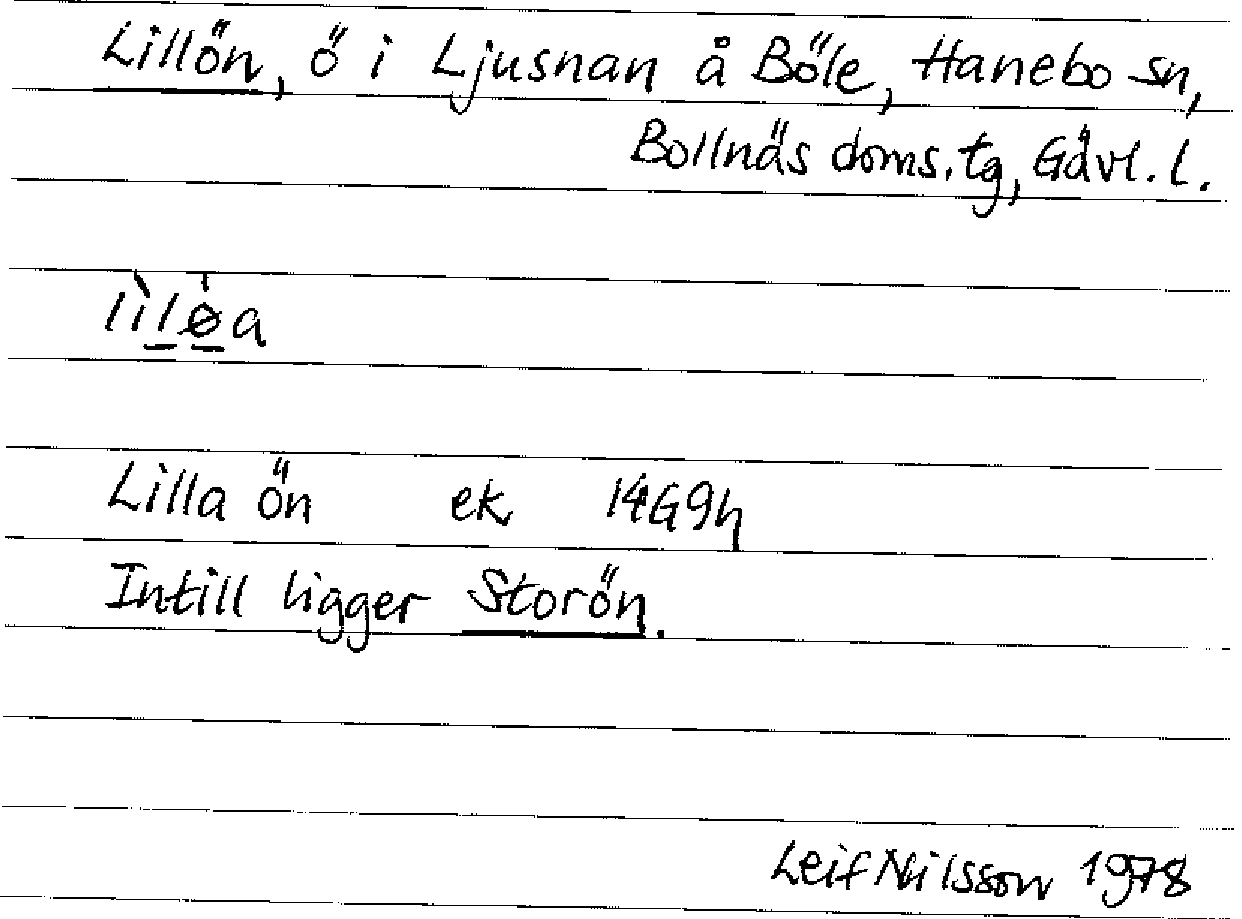 Lillön, ö i Ljusnan å Böle, Hanebo sn,
Bollnäs doms.tg, Gävl. l.
lìl̲ø̲̍a
Lilla ön ek 14G9h
Intill ligger Storön.
Leif Nilsson 1978